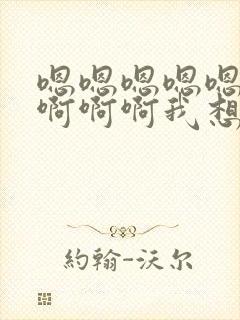 嗯嗯嗯嗯嗯
啊啊啊我想
約翰-沃尔